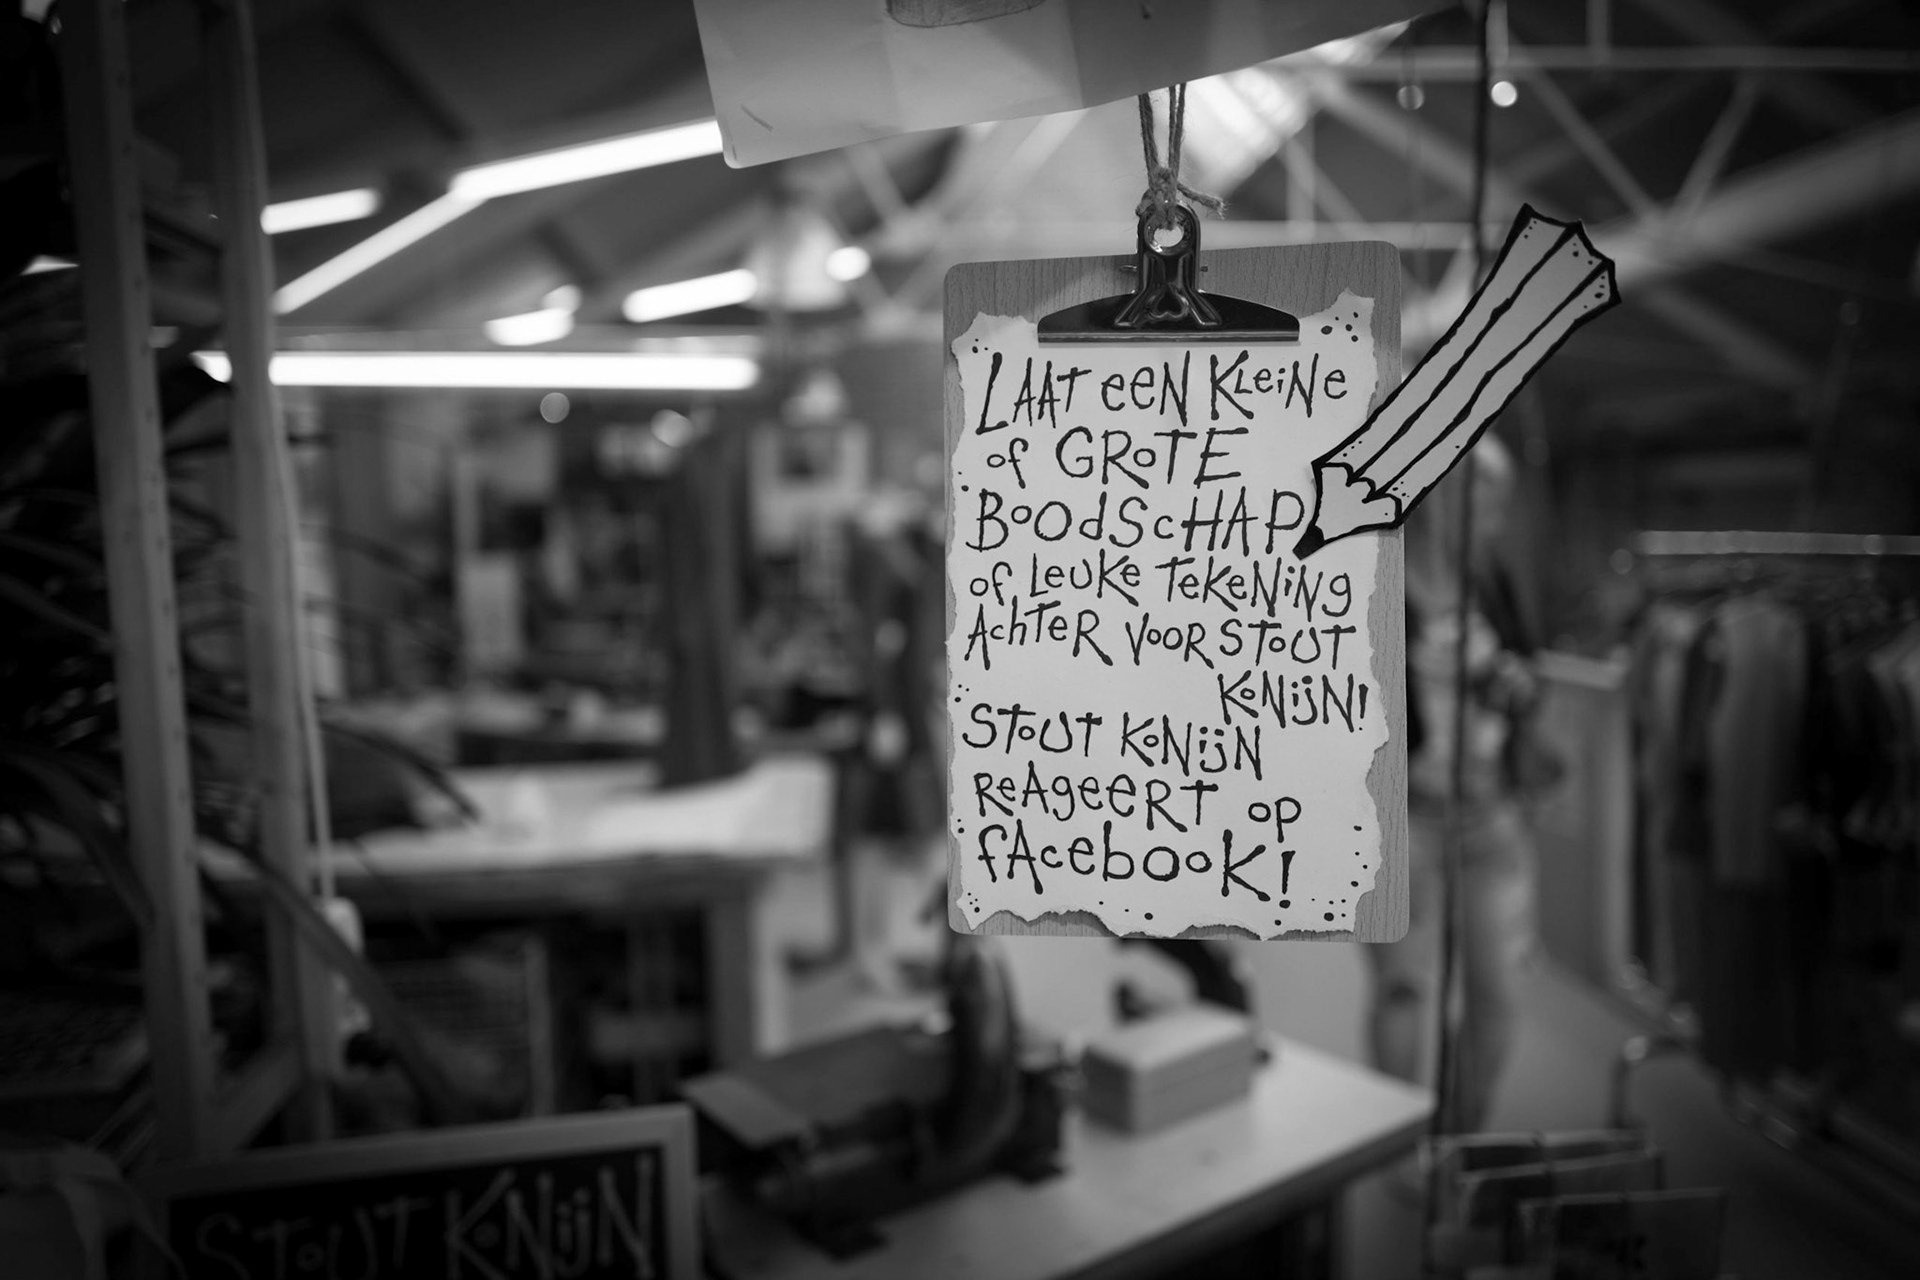 LAAT eeN KLeiNe
of GRoTE
BoOdScHAP
of LeuKe TeKeNiNg
AchTeR VooR SToUT
KoNijN!
SToUT KoNijN
ReAgeeRT op
fAcebooK!
SToUT KoNijN